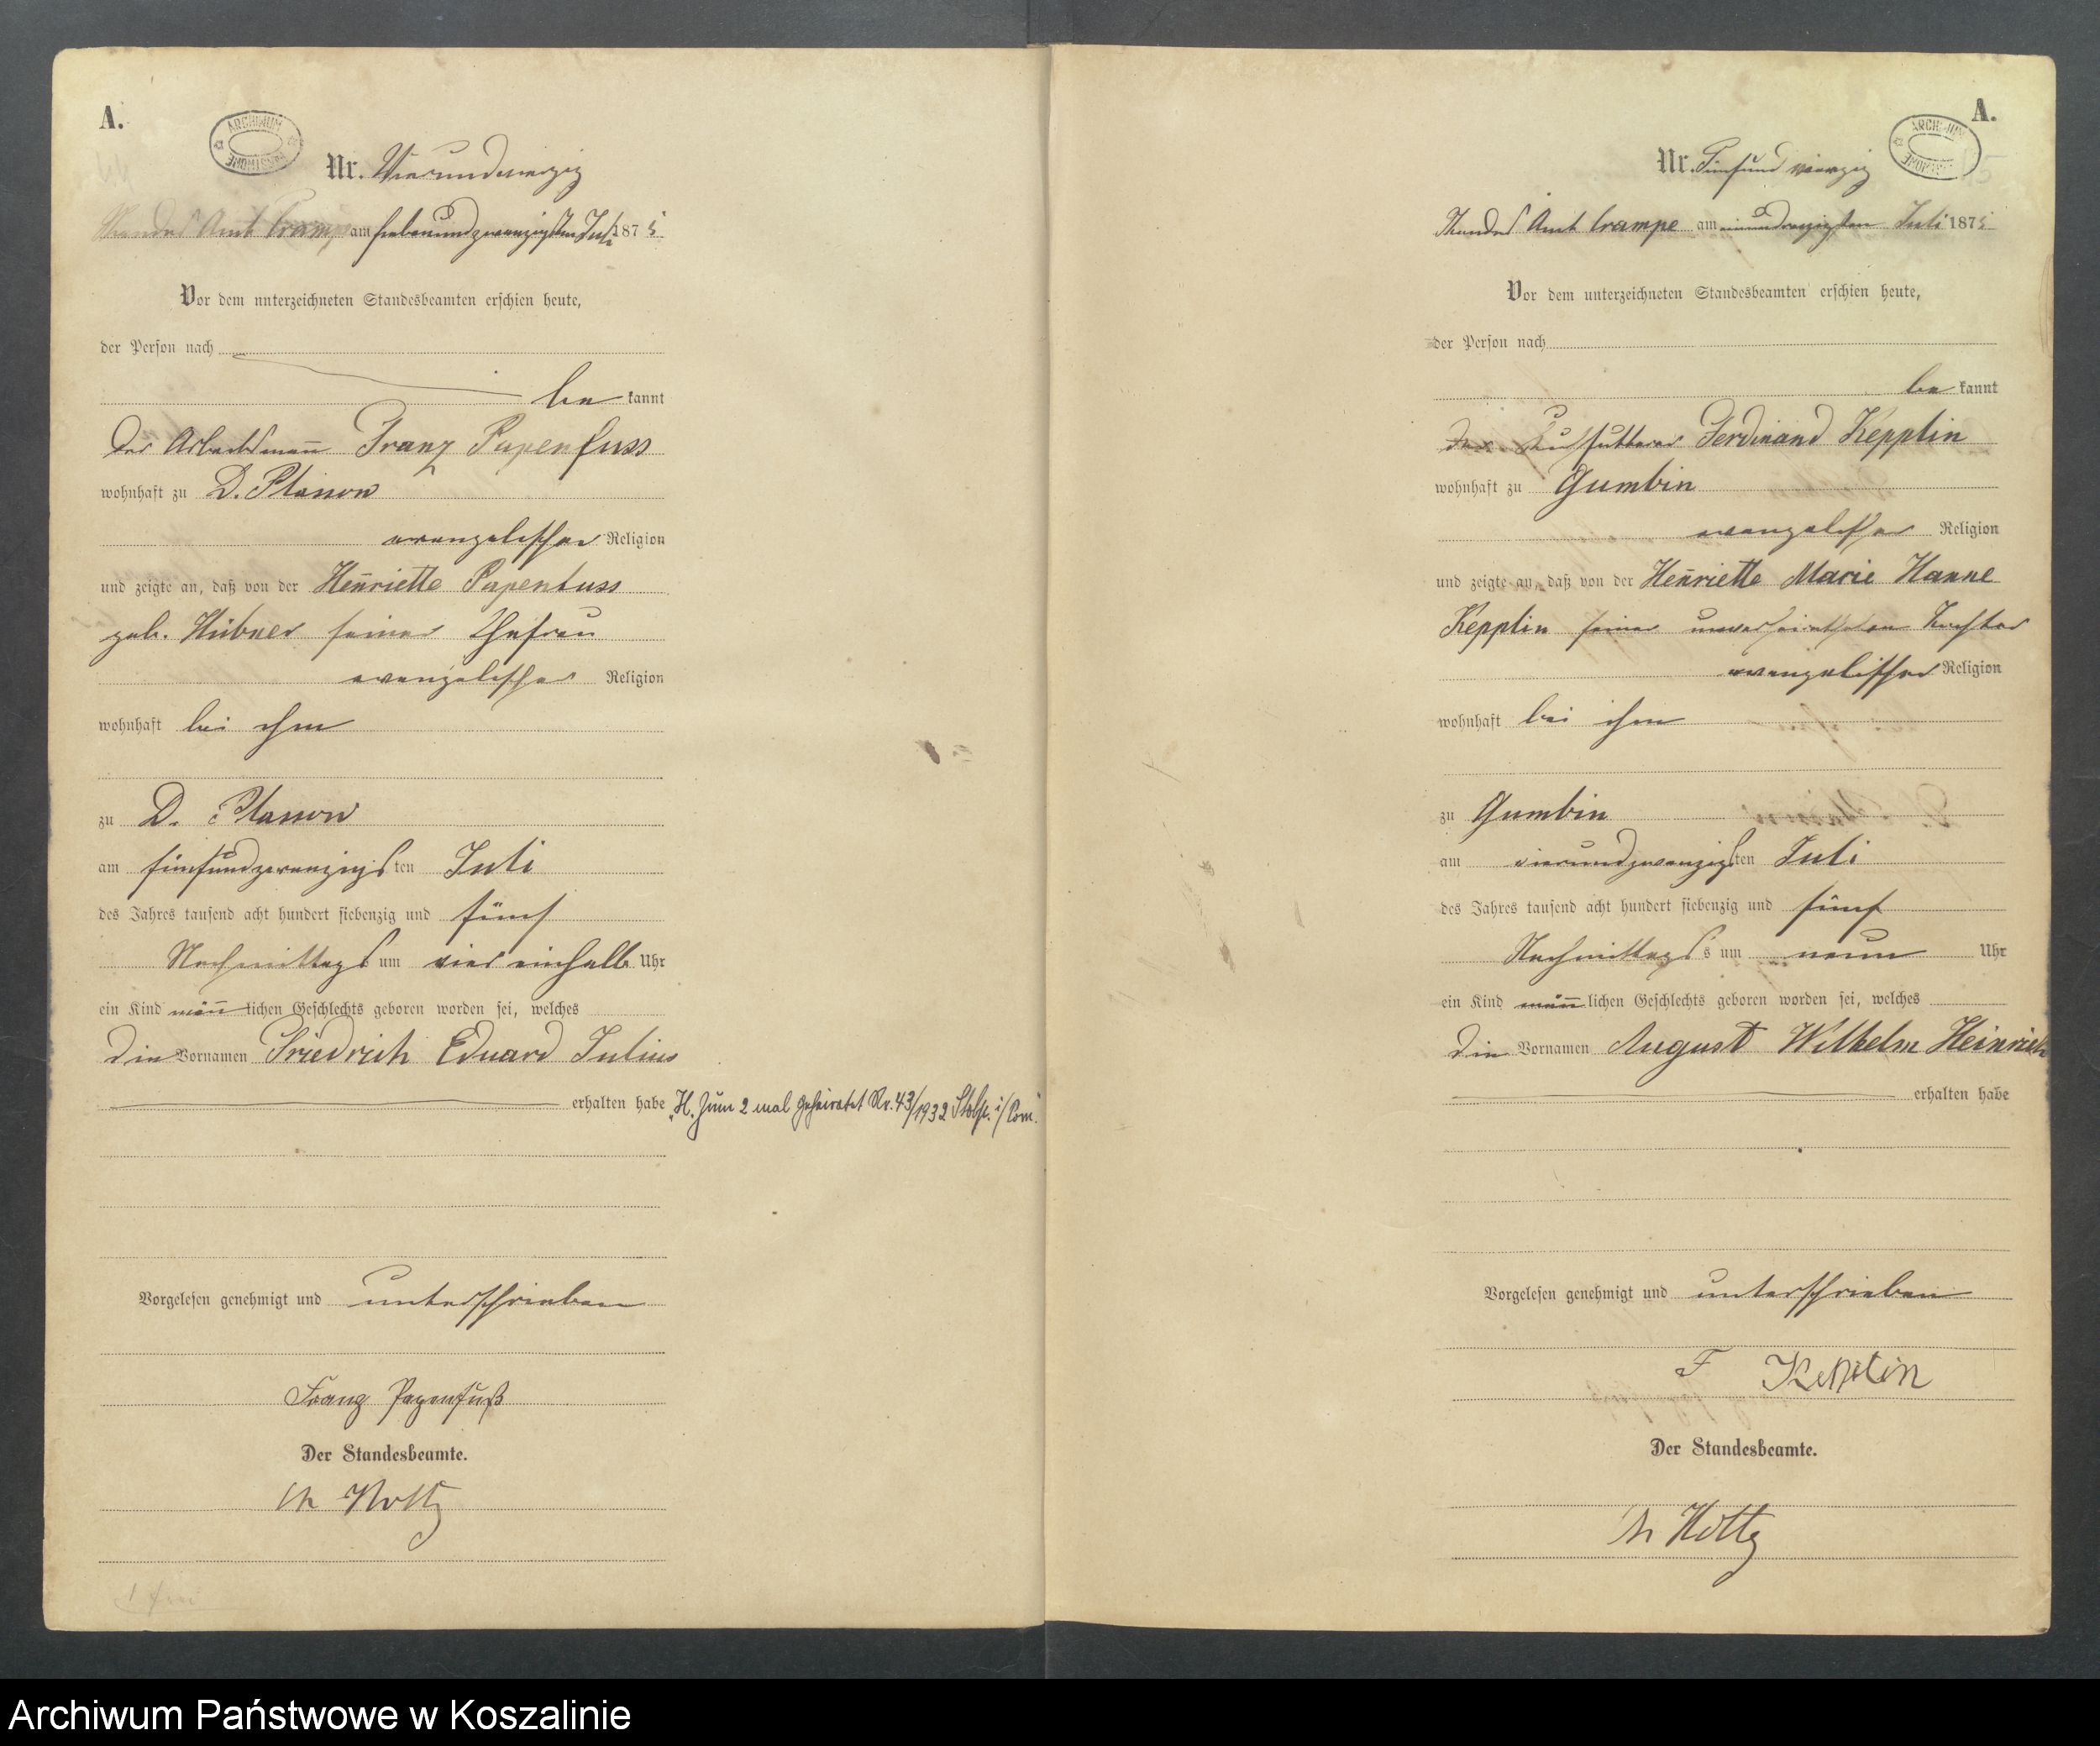 A.
ARCHIWUM
Nr. Vierundvierzig
Standes Amt Crampe am siebenundzwanzigsten Juli 1875
Vor dem unterzeichneten Standesbeamten erschien heute,
der Person nach
be kannt
der Arbeitsmañ Franz Papenfuss
wohnhaft zu D. Plassow
evangelischer Religion
und zeigte an, daß von der Heñriette Papenfuss
geb. Hübner seiner Ehefrau
evangelischer Religion
wohnhaft bei ihm
zu D. Plassow
am fünfundzwanzigsten Juli
des Jahres tausend acht hundert siebenzig und fünf
Nachmittags um vier einhalb Uhr
ein Kind mäñlichen Geschlechts geboren worden sei, welches
die Vornamen Friedrich Eduard Julius
erhalten habe H. Zum 2 mal geheiratet Nr. 43/1932 Stolp i/Pom.
Vorgelesen genehmigt und unterschrieben
Franz Papenfuß
Der Standesbeamte.
Holtz
A.
ARCHIWUM
Nr. Fünfundvierzig
Standes Amt Crampe am einunddreizigsten Juli 1875
Vor dem unterzeichneten Standesbeamten erschien heute,
der Person nach
be kannt
der Kuhfutterer Ferdinand Kepplin
wohnhaft zu Gumbin
evangelischer Religion
und zeigte an, daß von der Heñriette Marie Hanne
Kepplin seiner unverheiratheten Tochter
evangelischer Religion
wohnhaft bei ihm
zu Gumbin
am vierundzwanzigsten Juli
des Jahres tausend acht hundert siebenzig und fünf
Nachmittags um neun Uhr
ein Kind mäñlichen Geschlechts geboren worden sei, welches
die Vornamen August Wilhelm Heinrich
erhalten habe
Vorgelesen genehmigt und unterschrieben
F Kepplin
Der Standesbeamte.
Holtz
Archiwum Państwowe w Koszalinie